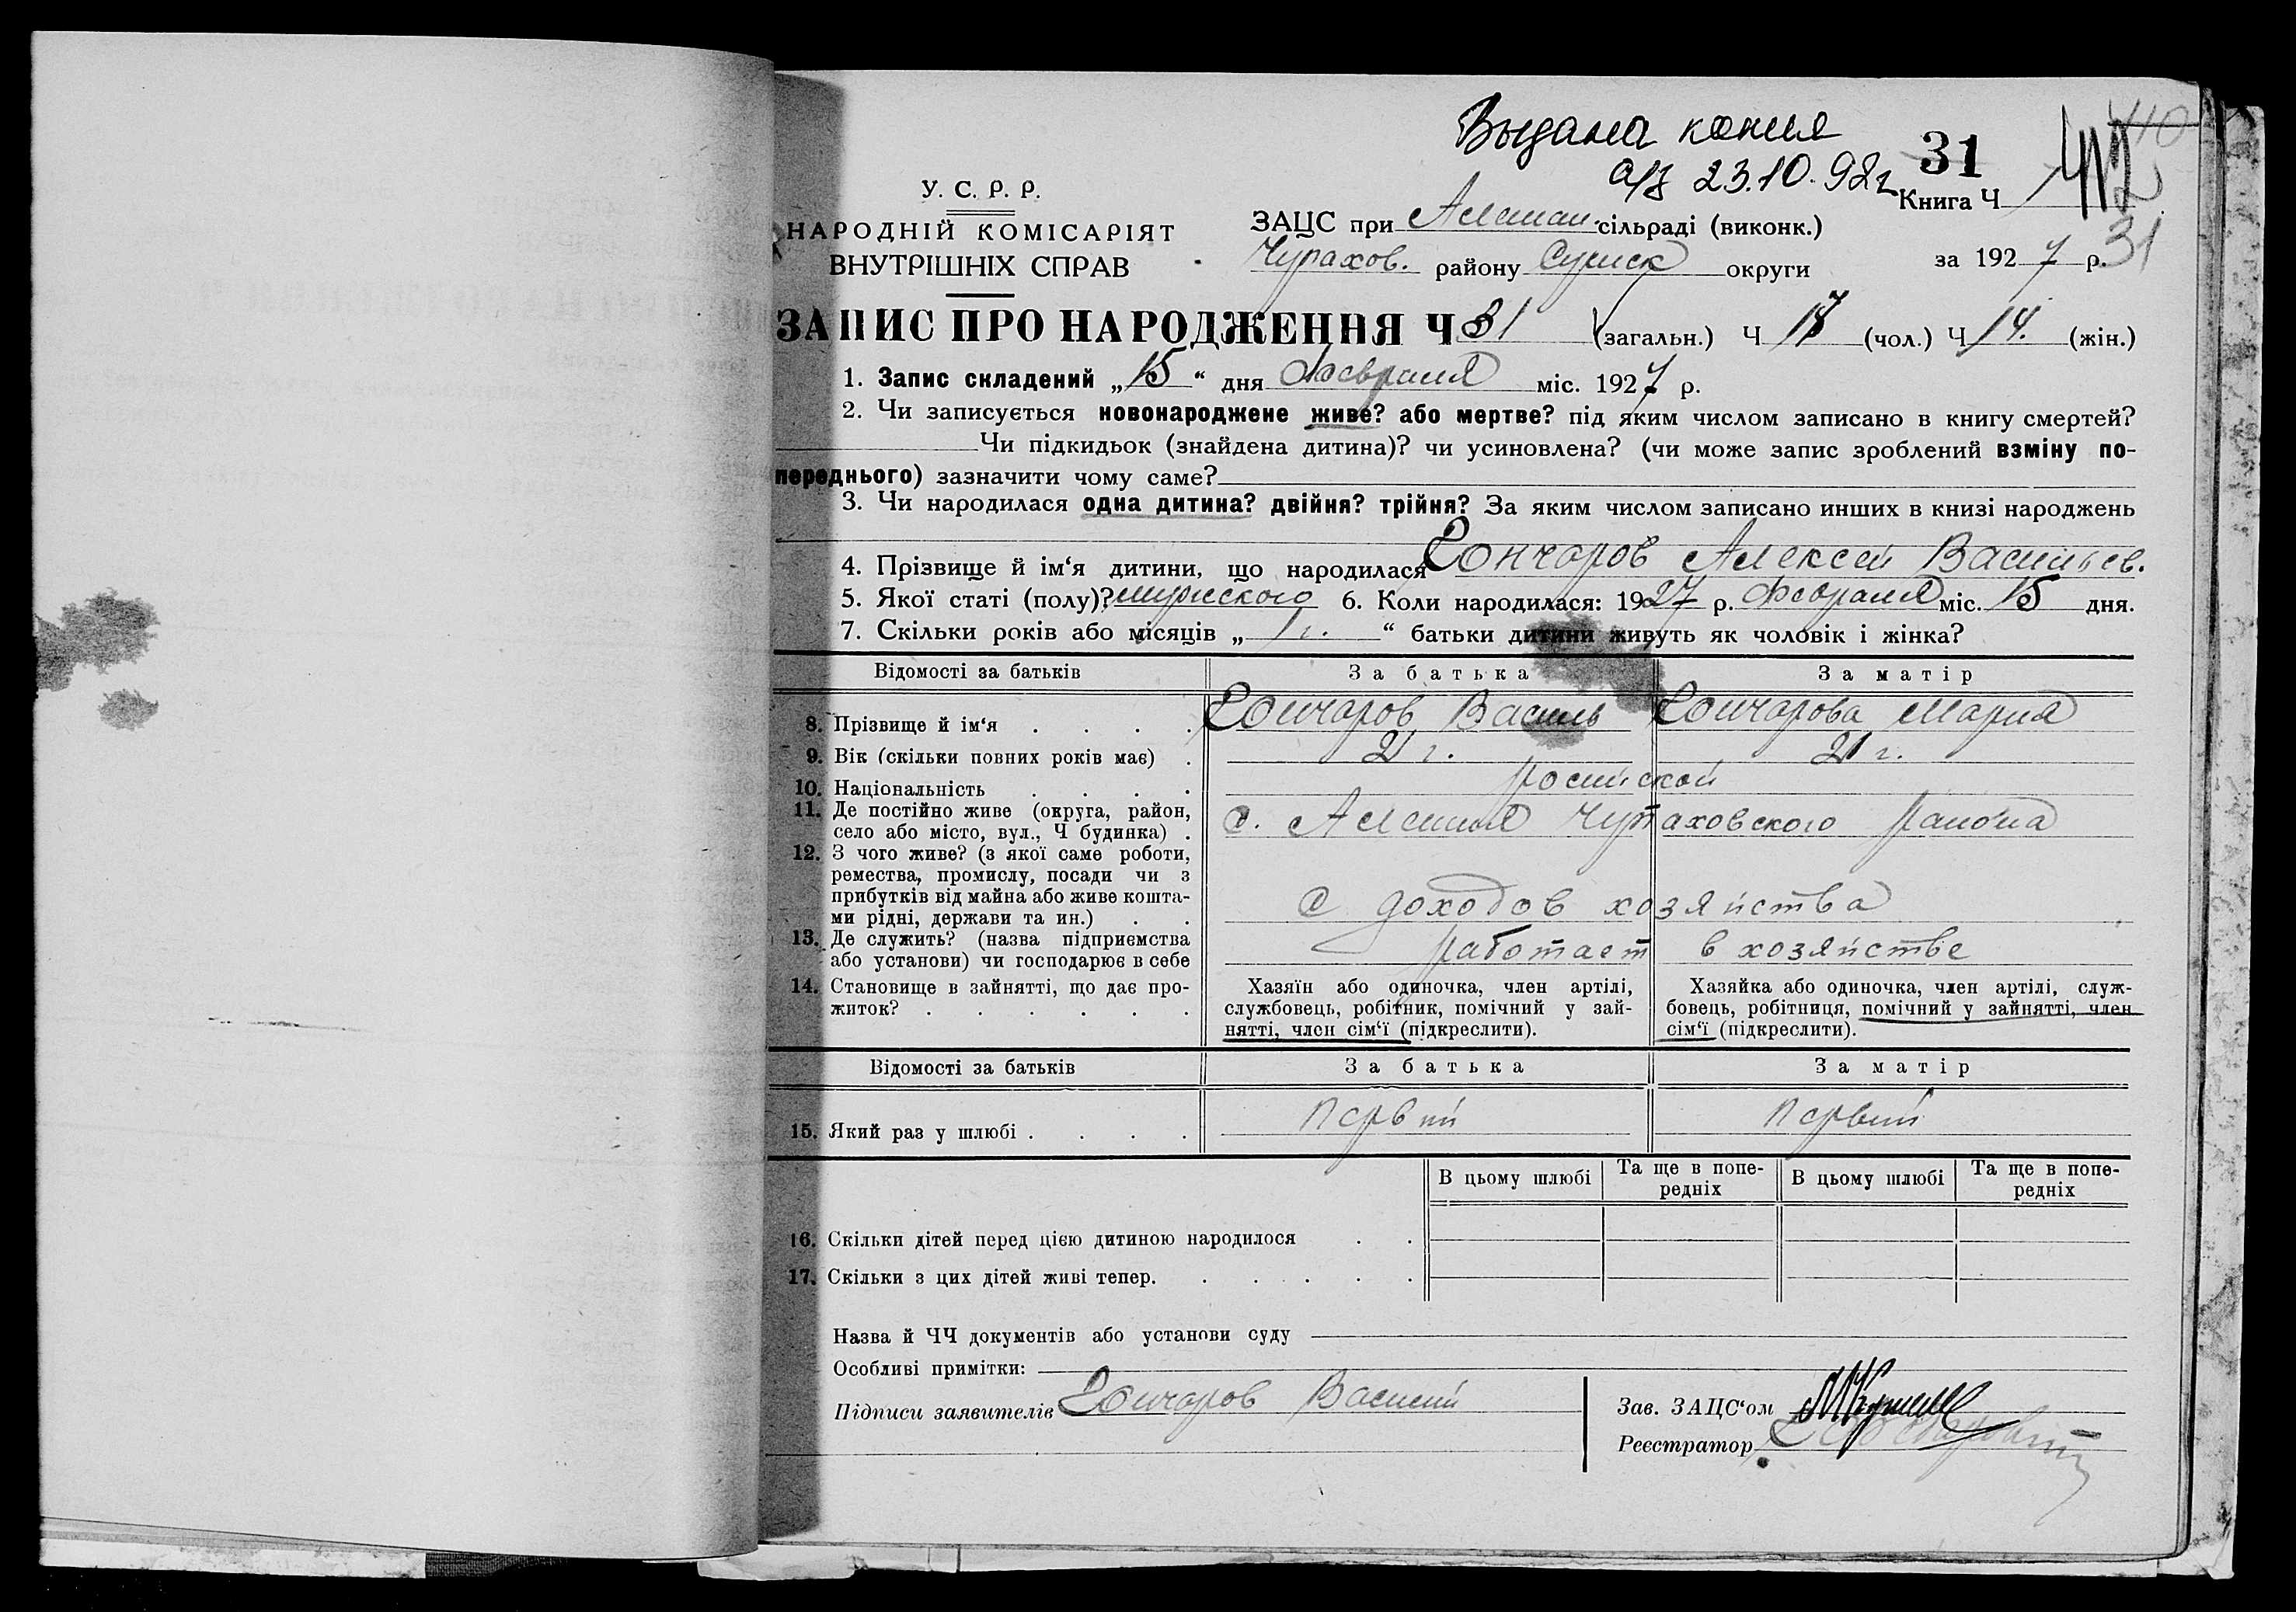 Выдана копия
а/з 23.10.92 г.
31
410
412
Книга Ч
31
У. С. Р. Р.
НАРОДНІЙ КОМІСАРІЯТ
ВНУТРІШНІХ СПРАВ
ЗАЦС при Алешан. сільраді (виконк.)
Чупахов. району Сумск округи
за 1927 р.
ЗАПИС ПРО НАРОДЖЕННЯ Ч 31 (загальн.) Ч 17 (чол.) Ч 14. (жін.)
1. Запис складений „15“ дня Февраля міс. 1927 р.
2. Чи записується новонароджене живе? або мертве? під яким числом записано в книгу смертей?
Чи підкидьок (знайдена дитина)? чи усиновлена? (чи може запис зроблений взміну по-
переднього) зазначити чому саме?
3. Чи народилася одна дитина? двійня? трійня? За яким числом записано инших в книзі народжень
4. Прізвище й ім‘я дитини, що народилася Гончаров Алексей Васильев.
5. Якої статі (полу)? мужского 6. Коли народилася: 1927 р. Февраля міс. 15 дня.
7. Скільки років або місяців „1 г.“ батьки дитини живуть як чоловік і жінка?
Відомості за батьків За батька За матір
8. Прізвище й ім‘я . . . . Гончаров Василь Гончарова Мария
9. Вік (скільки повних років має) . 21 г. 21 г.
10. Національність . . . . росийской
11. Де постійно живе (округа, район,
село або місто, вул., Ч будинка) . с. Алешня Чупаховского района
12. З чого живе? (з якої саме роботи,
ремества, промислу, посади чи з
прибутків від майна або живе кошта-
ми рідні, держави та ин.) . . С доходов хозяйства
13. Де служить? (назва підприємства
або установи) чи господарює в себе работает в хозяйстве
14. Становище в зайнятті, що дає про-
житок? . . . . . .
Хазяїн або одиночка, член артілі,
службовець, робітник, помічний у зай-
нятті, член сім‘ї (підкреслити).
Хазяйка або одиночка, член артілі, служ-
бовець, робітниця, помічний у зайнятті, член
сім‘ї (підкреслити).
Відомості за батьків За батька За матір
15. Який раз у шлюбі . . . . Первий Первий
В цьому шлюбі Та ще в попе-
редніх В цьому шлюбі Та ще в попе-
редніх
16. Скільки дітей перед цією дитиною народилося . .
17. Скільки з цих дітей живі тепер. . . . . .
Назва й ЧЧ документів або установи суду
Особливі примітки:
Підписи заявителів Гончаров Василий
Зав. ЗАЦС‘ом
Реєстратор